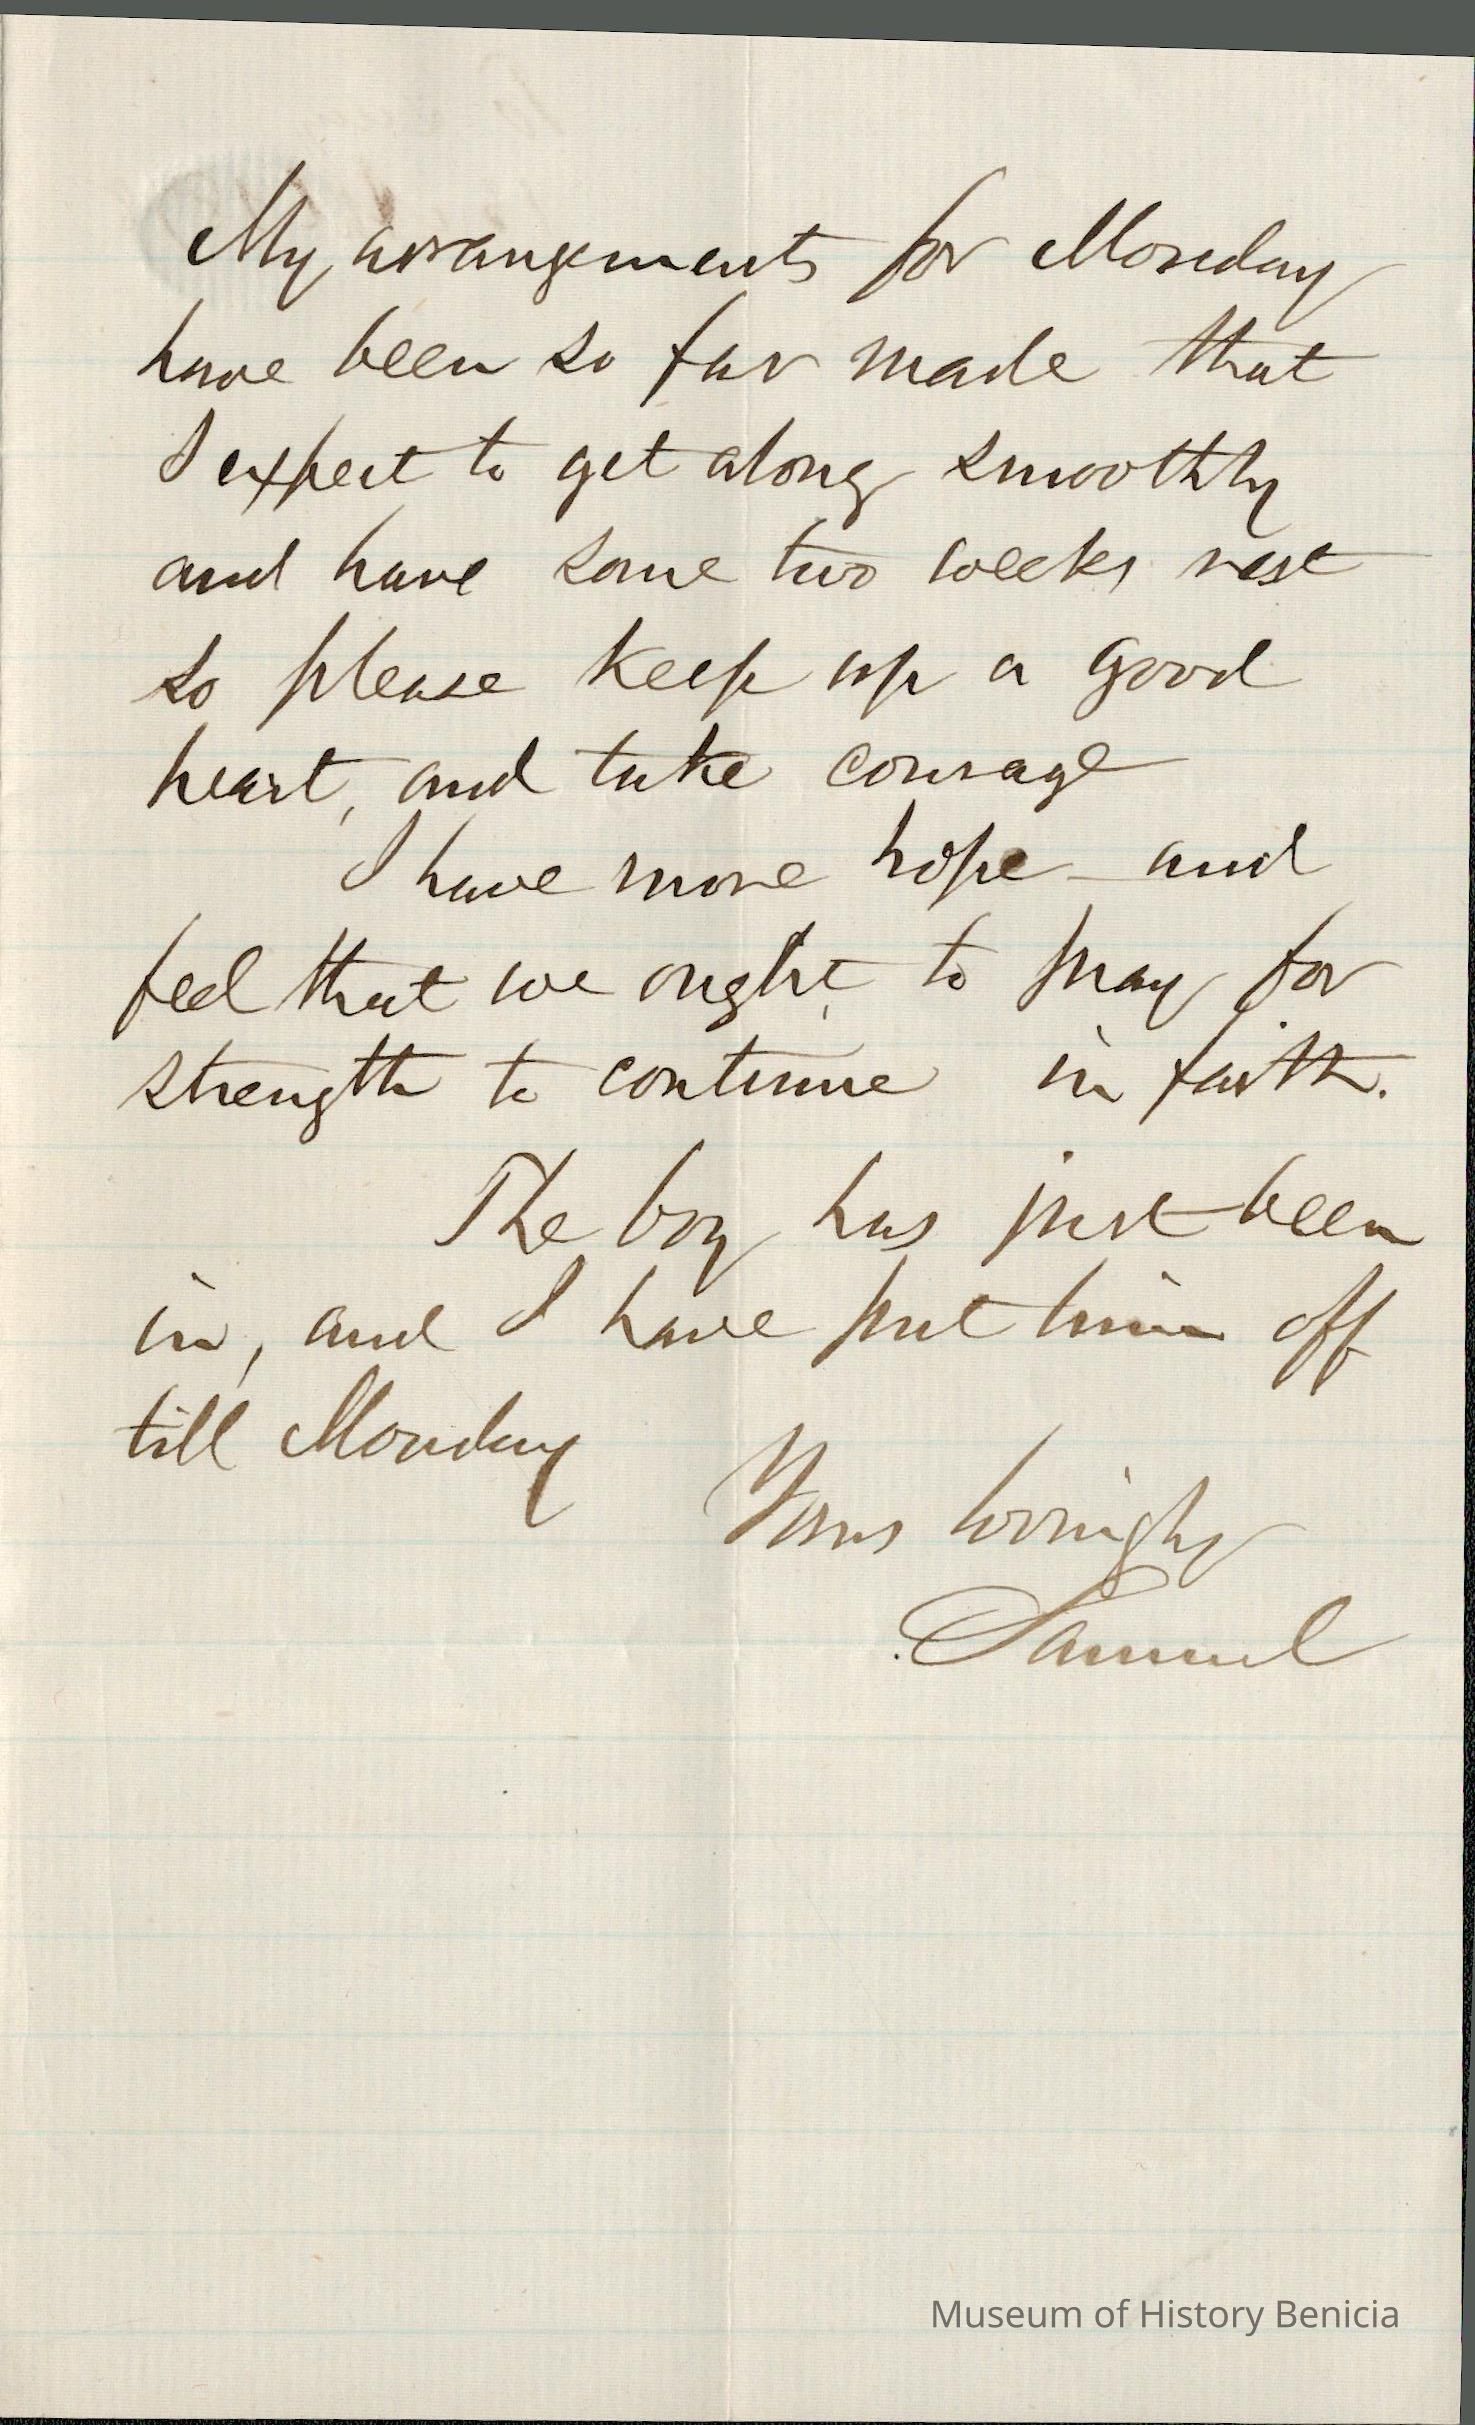 My arrangements for Monday
have been so far made that
I expect to get along smoothly
and have some two weeks rest
so please keep up a good
heart, and take courage
I have more hope and
feel that we ought to pray for
strength to continue in faith.
The boy has just been
in, and I have put him off
till Monday
Yours lovingly
Samuel
Museum of History Benicia